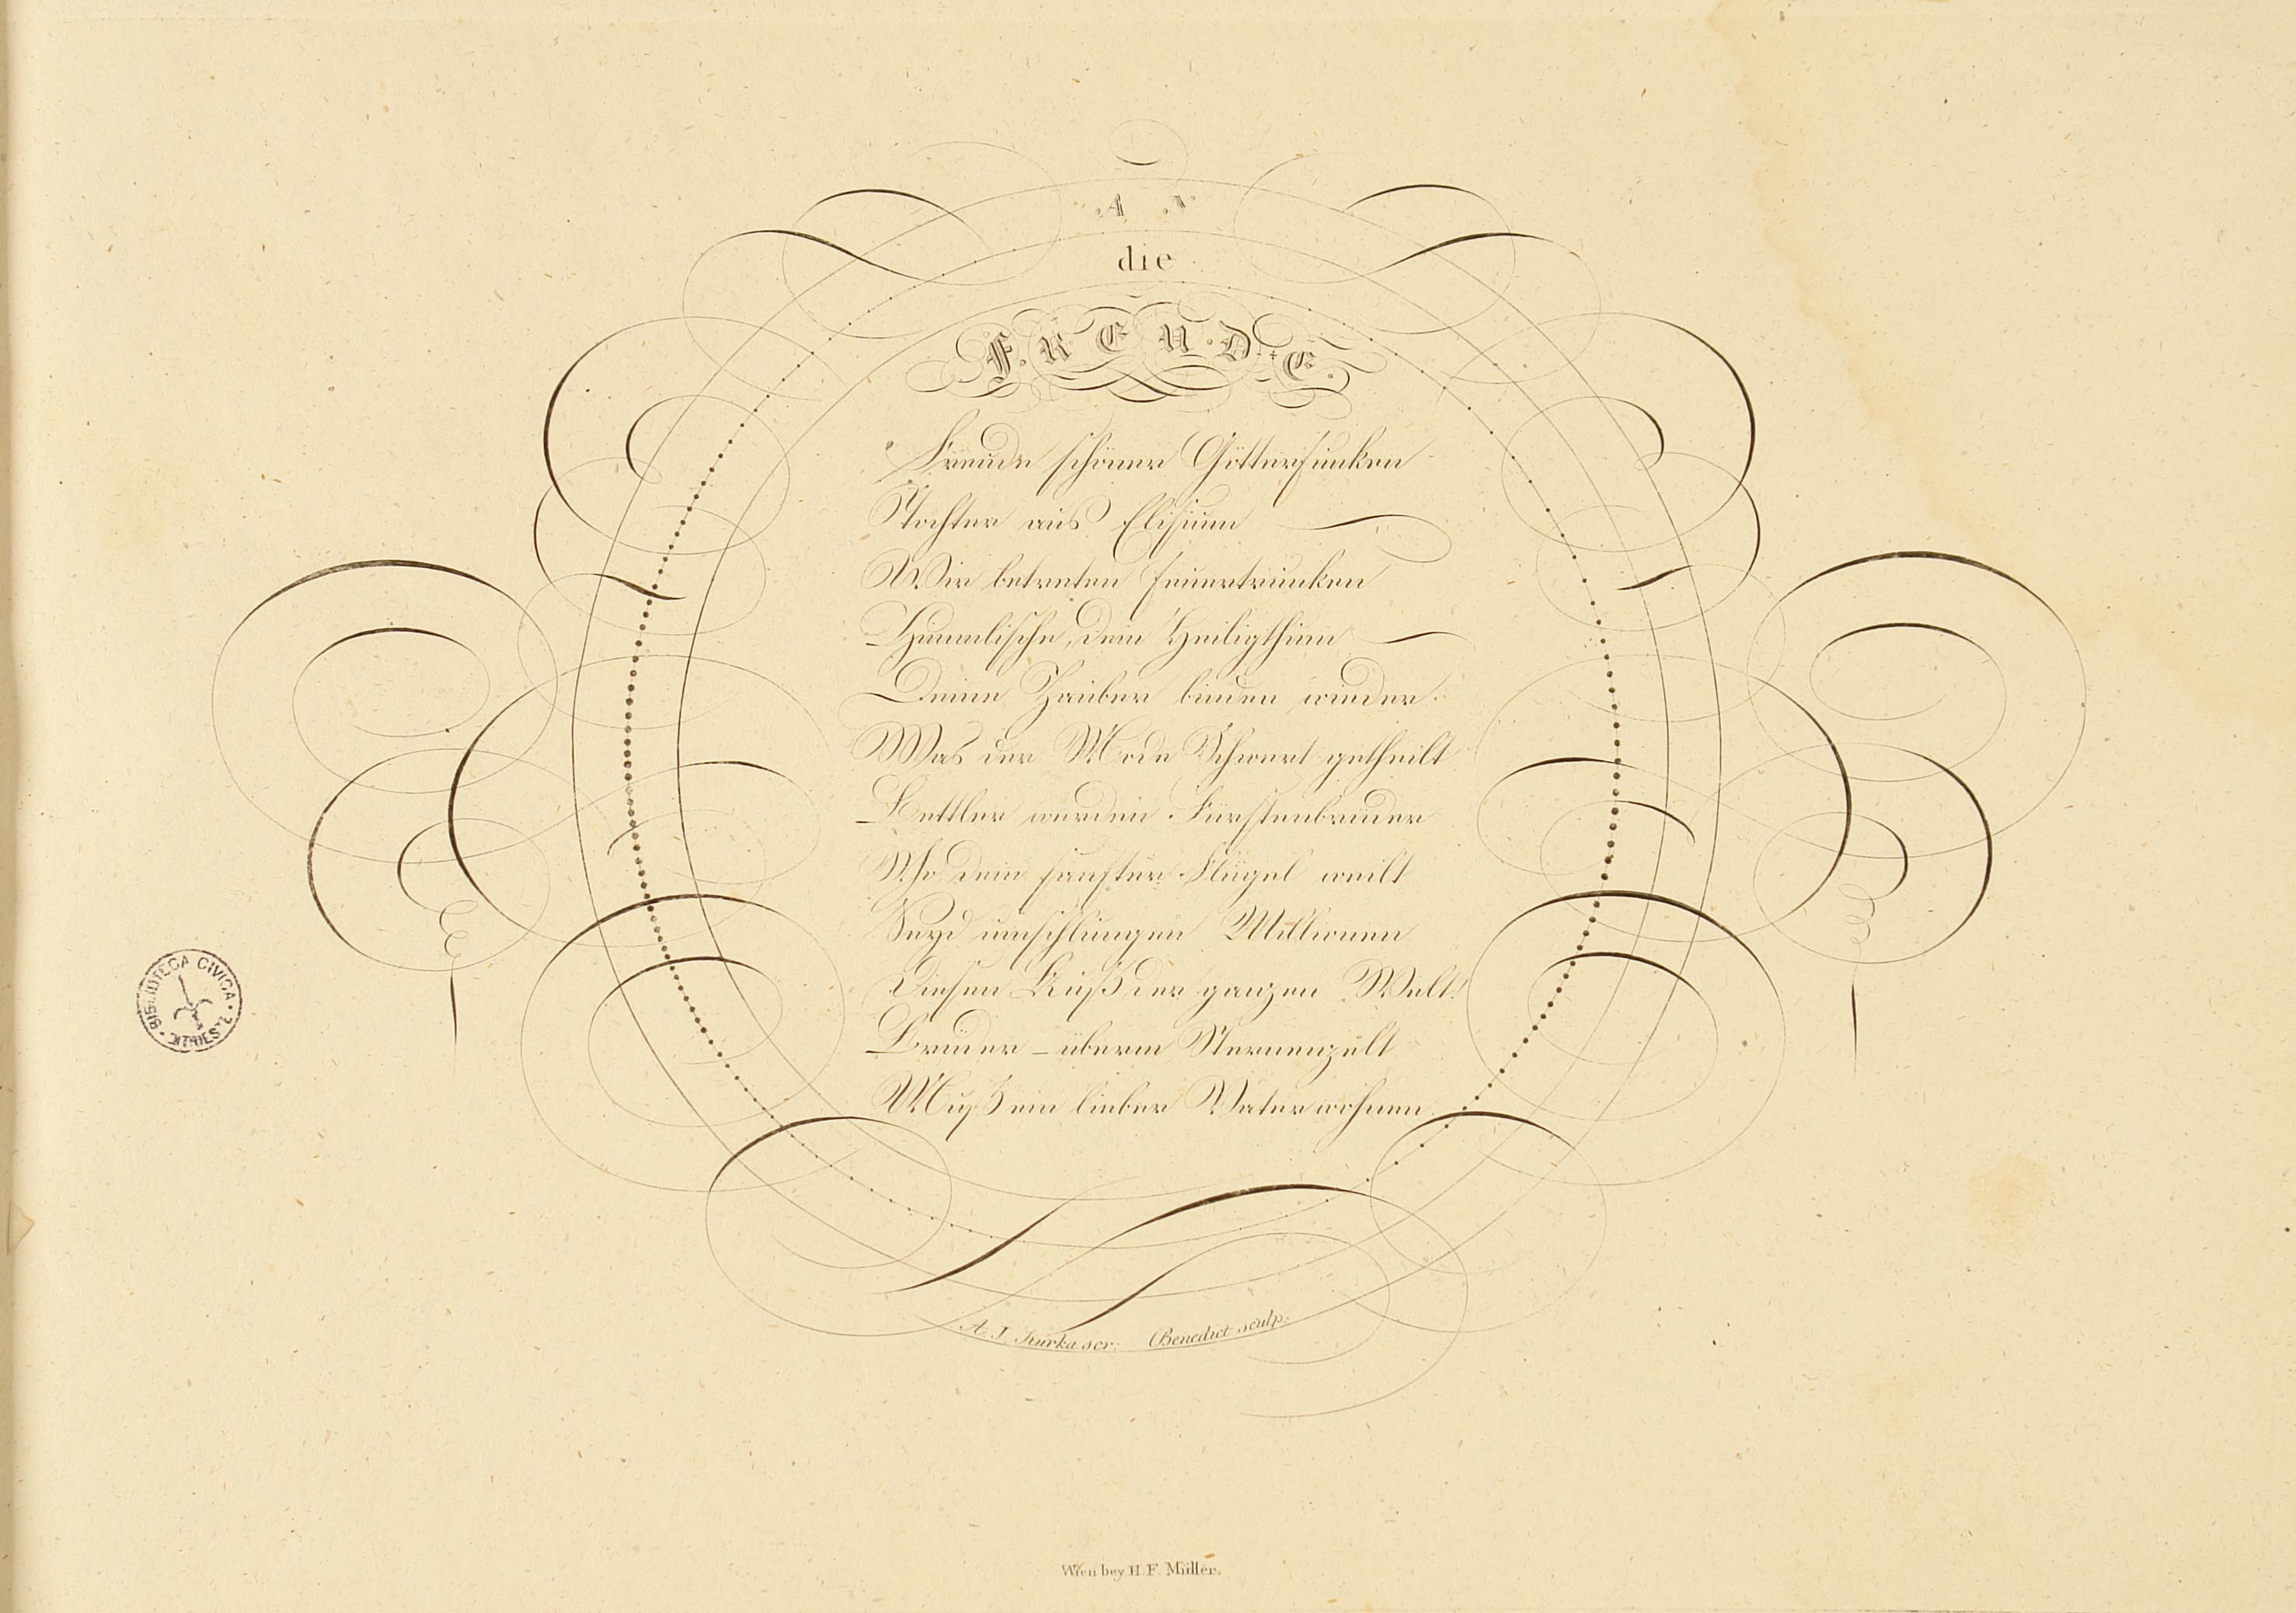 AN
die
FREUDE.
Freude schöner Götterfunken
Tochter aus Elisium
Wir betreten feuertrunken
Himmlische, dein Heiligthum
Deine Zauber binden wieder.
Was der Mode Schwert getheilt
Bettler werden Fürstenbrüder
Wo dein sanfter Flügel weilt
Seyd umschlungen Millionen
Diesen Kuß der ganzen Welt!
Brüder – überm Sternenzelt
Muß ein lieber Vater wohnen
A. J. Kurka scr. Benedict sculp.
BIBLIOTECA CIVICA
Wien bey H. F. Müller.